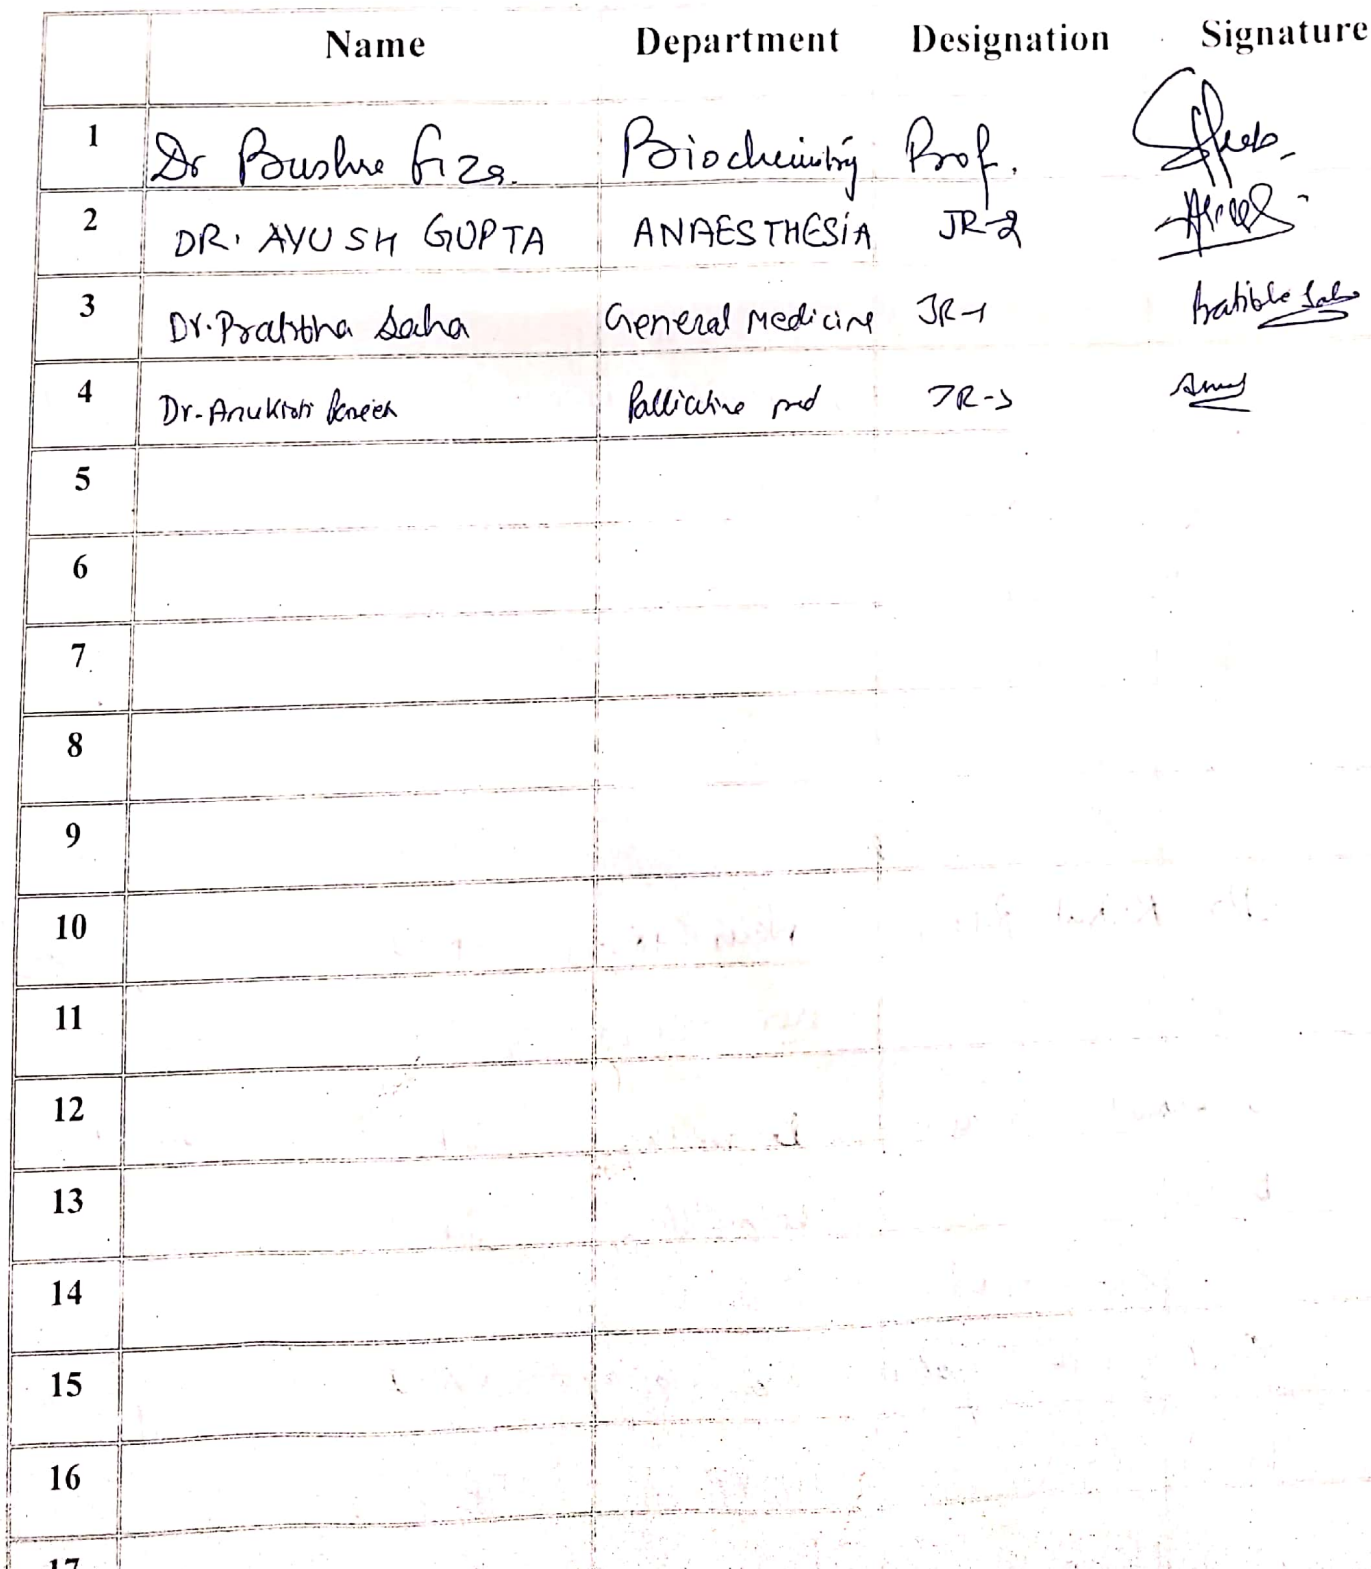 Name Department Designation Signature
1 Dr Bushra Fiza. Biochemistry Prof.
2 DR. AYUSH GUPTA ANAESTHESIA JR-2
3 Dr. Pratibha Saha General Medicine JR-1 Pratibha Saha
4 Dr. Anukirti Palliative med JR-3
5
6
7
8
9
10
11
12
13
14
15
16
17